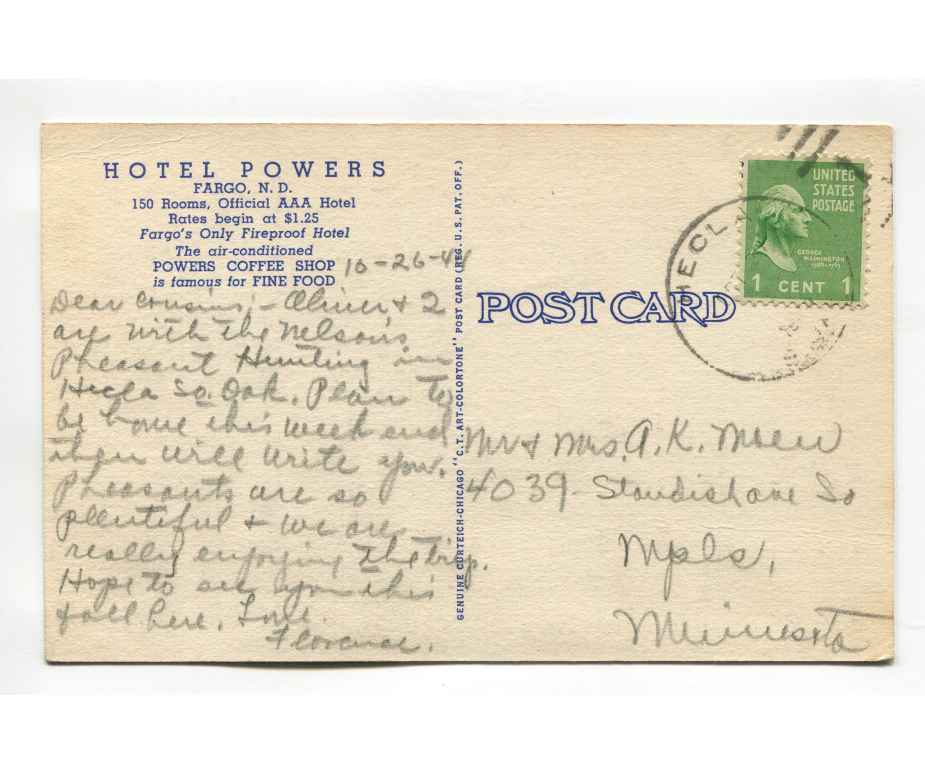 HOTEL POWERS
FARGO, N. D.
150 Rooms, Official AAA Hotel
Rates begin at $1.25
Fargo's Only Fireproof Hotel
The air-conditioned
POWERS COFFEE SHOP
is famous for FINE FOOD
10-26-44
Dear Cousins;- Oliver & I
are with the Nelsons
Pheasant Hunting in
Hecla So. Dak. Plan to
be home this week end
then will write you.
Pheasants are so
plentiful & we are
really enjoying the trip.
Hope to see you this
fall here. Love
Florence.
GENUINE CURTEICH-CHICAGO "C.T. ART-COLORTONE" POST CARD (REG. U.S. PAT. OFF.)
POST CARD
HECL
UNITED
STATES
POSTAGE
GEORGE
WASHINGTON
1 CENT 1
Mr & Mrs. A. K.
4039- Standish ave So
Mpls,
Minnesota